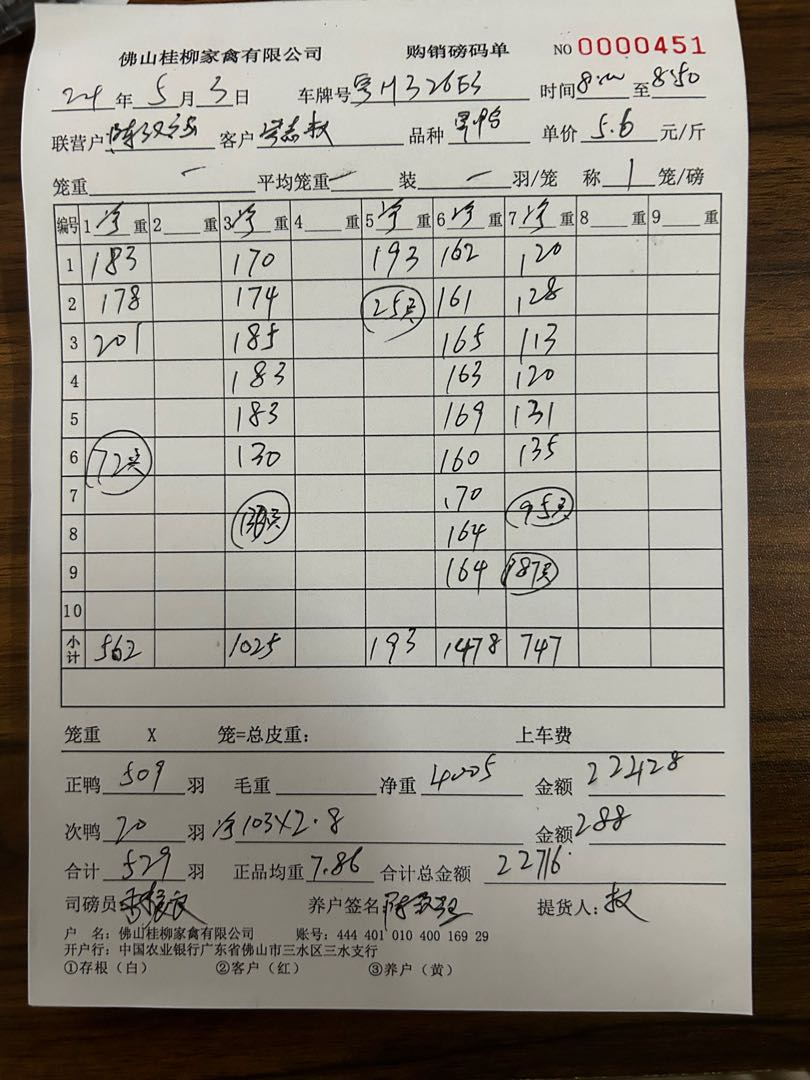 佛山桂柳家禽有限公司 购销磅码单 NO 0000451
24 年 5 月 3 日 车牌号 粤H326E3 时间 8:00 至 8:50
联营户 客户 品种 单价 5.6 元/斤
笼重 一 平均笼重 一 装 一 羽/笼 称 1 笼/磅
编号 1 净 重 2 重 3 净 重 4 重 5 净 重 6 净 重 7 净 重 8 重 9 重
1 183 170 193 162 120
2 178 174 25只 161 128
3 201 185 165 113
4 183 163 120
5 183 169 131
6 72只 130 160 135
7 170 95只
8 164
9 164 187只
10
小计 562 1025 193 1478 747
笼重 X 笼=总皮重： 上车费
正鸭 509 羽 毛重 净重 4005 金额 22428
次鸭 20 羽 净103X2.8 金额 288
合计 529 羽 正品均重 7.86 合计总金额 22716
司磅员 养户签名 提货人：
户 名：佛山桂柳家禽有限公司 账号：444 401 010 400 169 29
开户行：中国农业银行广东省佛山市三水区三水支行
①存根（白） ②客户（红） ③养户（黄）